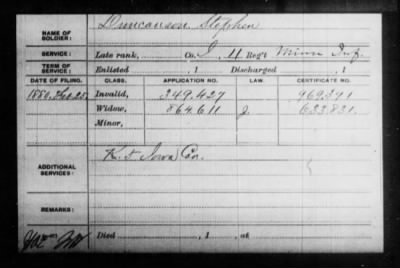 NAME OF SOLDIER: Duncanson Stephen
SERVICE: Late rank, Co. I, 4 Reg't Minn Inf.
TERM OF SERVICE: Enlisted , 1 Discharged , 1
DATE OF FILING. CLASS. APPLICATION NO. LAW. CERTIFICATE NO.
1880, Feb 25. Invalid, 349.427 969.391
Widow, 864.611 J. 633.831.
Minor,
ADDITIONAL SERVICES: K. 5 Iowa Cav.
REMARKS:
Died , 1 , at